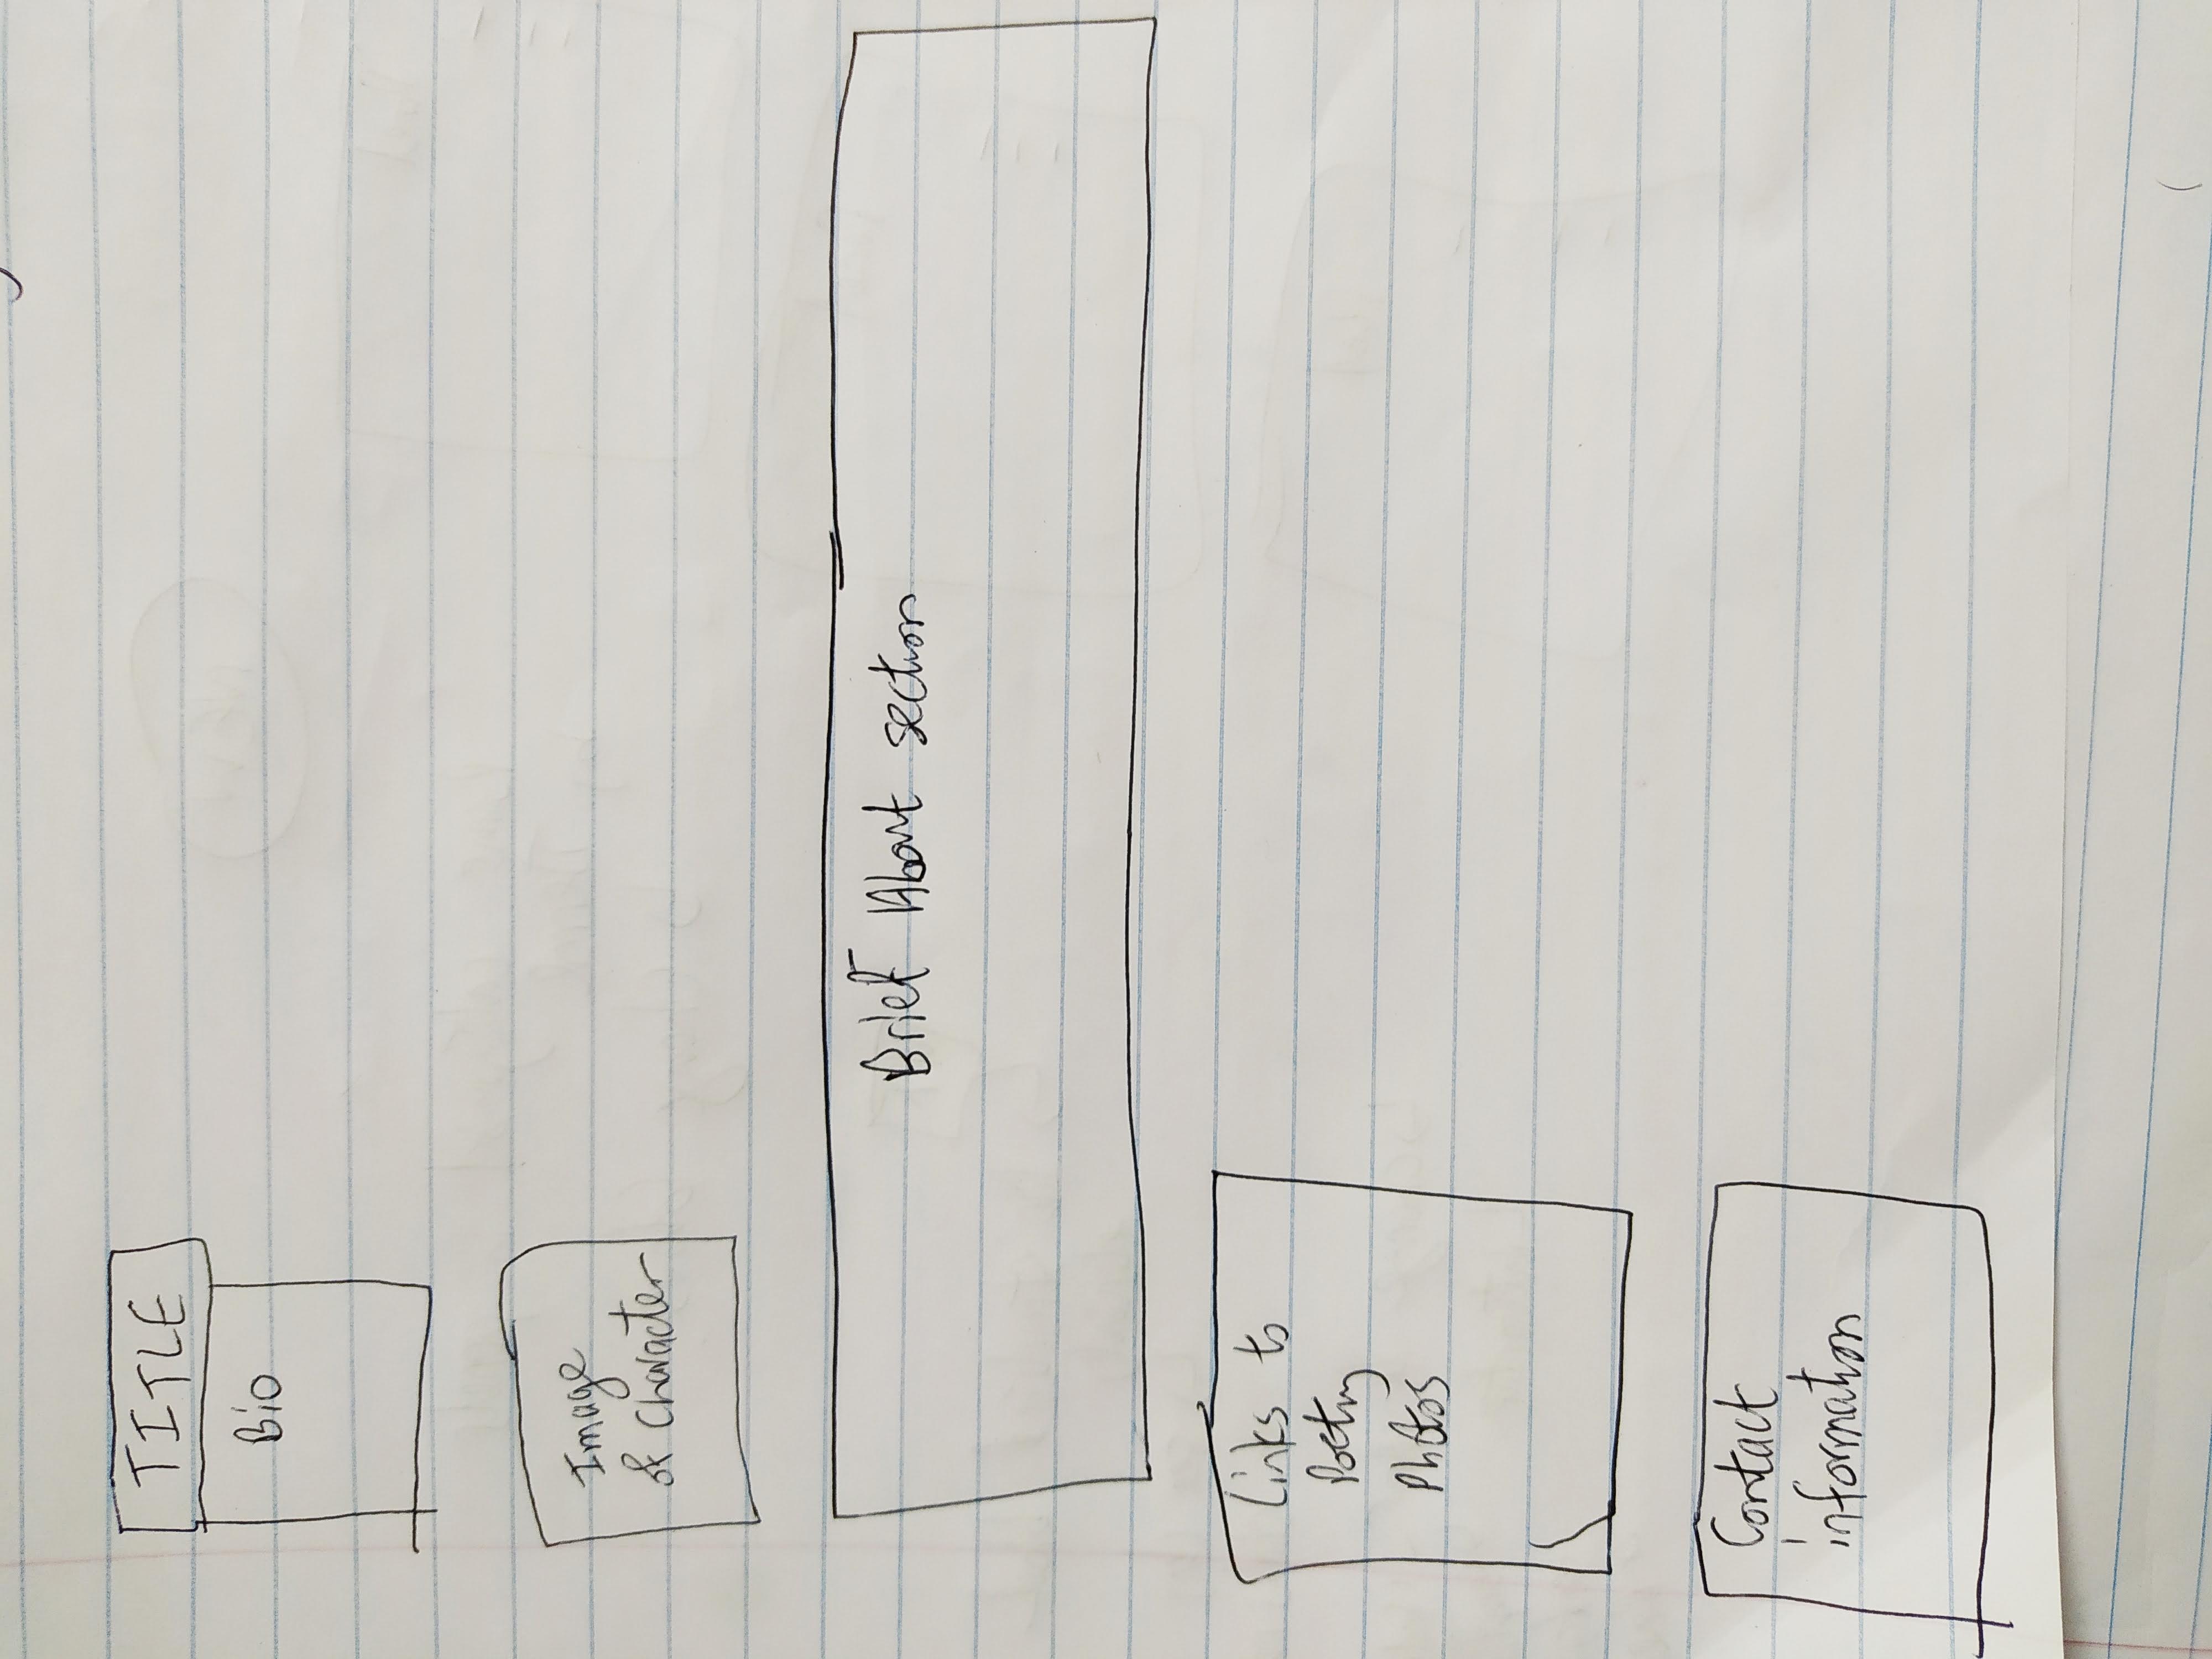 TITLE
Bio
Image
& Character
Brief About section
Links to
Poetry
Photos
Contact
information